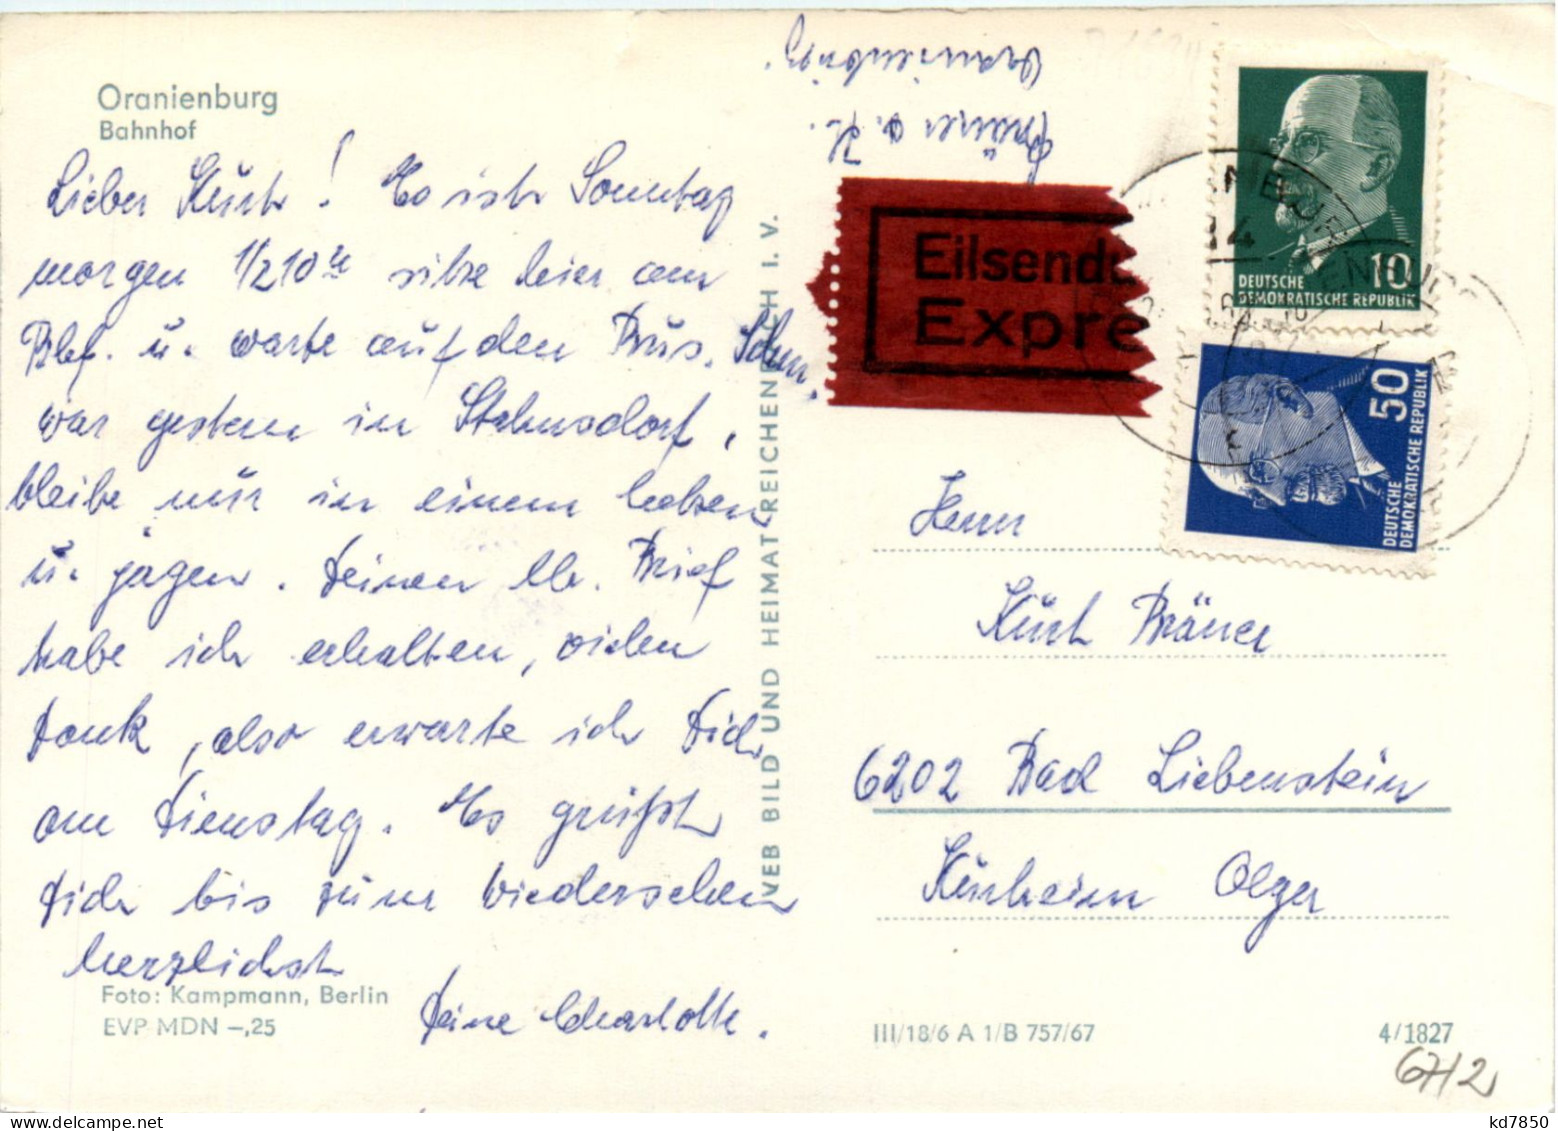 Oranienburg
Bahnhof
Lieber Kurt! Es ist Sonntag
morgen 1/2 10 sitze hier am
Bhf. u. warte auf den Bus.
war gestern in Stahnsdorf,
bleibe nur in einem hetzen
u. jagen. Deinen lb. Brief
habe ich erhalten, vielen
Dank, also erwarte ich Dich
am Dienstag. Es grüßt
Dich bis zum Wiedersehen
herzlichst
Deine Charlotte.
Foto: Kampmann, Berlin
EVP MDN –,25
VEB BILD UND HEIMAT REICHENBACH I. V.
Oranienburg.
Eilsendu
Expre
10
DEUTSCHE
DEMOKRATISCHE REPUBLIK
50
DEUTSCHE
DEMOKRATISCHE REPUBLIK
Herrn
Kurt Bräuer
6202 Bad Liebenstein
Kurheim Olga
III/18/6 A 1/B 757/67
4/1827
6712
kd7850